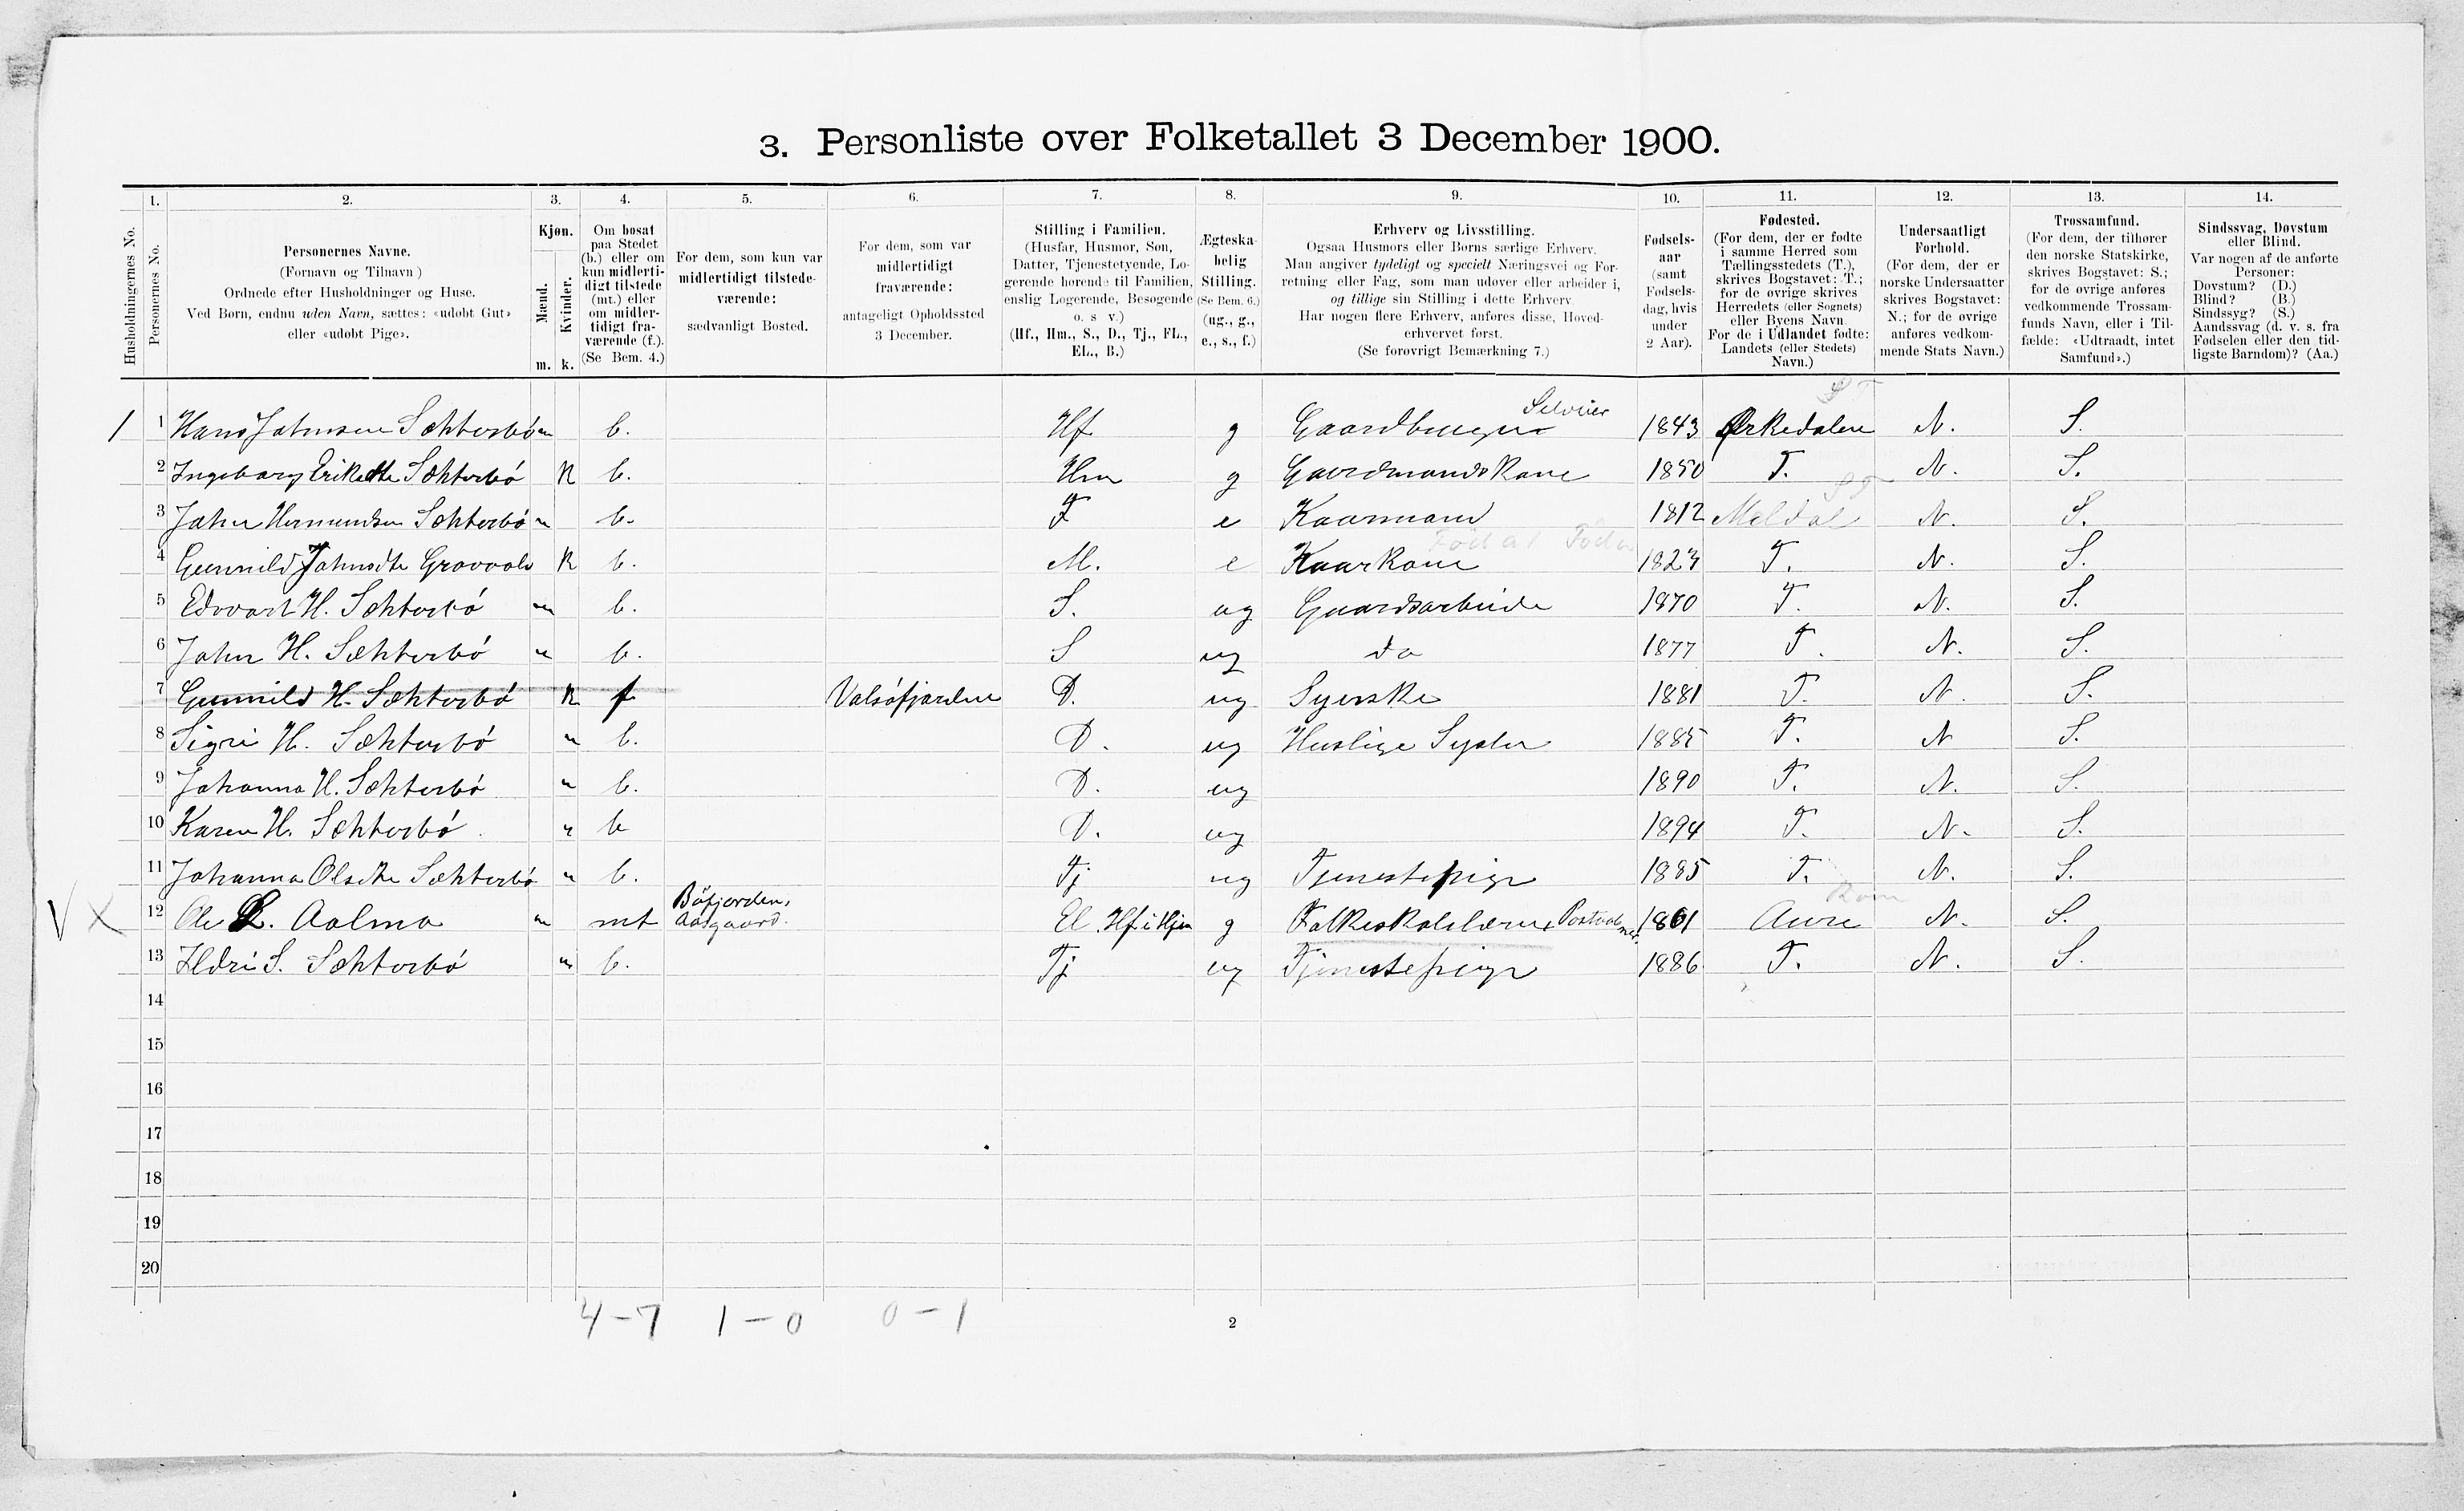 3. Personliste over Folketallet 3 December 1900.
Husholdningernes No.
1. Personernes No.
2. Personernes Navne. (Fornavn og Tilnavn) Ordnede efter Husholdninger og Huse. Ved Børn, endnu uden Navn, sættes: «udøbt Gut» eller «udøbt Pige».
3. Kjøn. Mænd. m. Kvinder. k.
4. Om bosat paa Stedet (b.) eller om kun midlertidigt tilstede (mt.) eller om midlertidigt fraværende (f.). (Se Bem. 4.)
5. For dem, som kun var midlertidigt tilstedeværende: sædvanligt Bosted.
6. For dem, som var midlertidigt fraværende: antageligt Opholdssted 3 December.
7. Stilling i Familien. (Husfar, Husmor, Søn, Datter, Tjenestetyende, Logerende hørende til Familien, enslig Logerende, Besøgende o. s v.) (Hf., Hm., S., D., Tj., FL., EL., B.)
8. Ægteskabelig Stilling. (Se Bem. 6.) (ug., g., e., s., f.)
9. Erhverv og Livsstilling. Ogsaa Husmors eller Børns særlige Erhverv. Man angiver tydeligt og specielt Næringsvei og Forretning eller Fag, som man udøver eller arbeider i, og tillige sin Stilling i dette Erhverv. Har nogen flere Erhverv, anføres disse, Hovederhvervet først. (Se forøvrigt Bemærkning 7.)
10. Fødselsaar (samt Fødselsdag, hvis under 2 Aar).
11. Fødested. (For dem, der er fødte i samme Herred som Tællingsstedets (T.), skrives Bogstavet: T.; for de øvrige skrives Herredets (eller Sognets) eller Byens Navn. For de i Udlandet fødte: Landets (eller Stedets) Navn.)
12. Undersaatligt Forhold. (For dem, der er norske Undersaatter skrives Bogstavet: N.; for de øvrige anføres vedkommende Stats Navn.)
13. Trossamfund. (For dem, der tilhører den norske Statskirke, skrives Bogstavet: S.; for de øvrige anføres vedkommende Trossamfunds Navn, eller i Tilfælde: «Udtraadt, intet Samfund».)
14. Sindssvag, Døvstum eller Blind. Var nogen af de anførte Personer: Døvstum? (D.) Blind? (B.) Sindssyg? (S.) Aandssvag (d. v. s. fra Fødselen eller den tidligste Barndom)? (Aa.)
S T
1 1 Hans Johnsen Sæhterbö m b. Hf g Gaardbruger Selveier 1843 Ørkedalen N. S.
2 Ingeborg Eriksdtr Sæhterbö k b. Hm g Gaardmandskone 1850 T. N. S.
3 John Hermundsen Sæhterbö " b. F e Kaarmand 1812 Meldal N. S.
4 Gunnild Johnsdtr k b. M. e Kaarkone 1823 T. N. S.
5 Edvart H. Sæhterbö m b. S. ug Gaardsarbeide 1870 T. N. S.
6 John H. Sæhterbö " b. S ug do 1877 T. N. S.
7 Gunnild H. Sæhterbö k f Valsöfjorden D. ug Syerske 1881 T. N. S.
8 Sigri H. Sæhterbö " b. D. ug Huslige Sysler 1885 T. N S.
9 Johanna H. Sæhterbö " b. D. ug 1890 T. N. S.
10 Karen H. Sæhterbö " b D. ug 1894 T. N. S.
11 Johanna Olsdtr Sæhterbö " b. Tj ug Tjenestepige 1885 T. N. S.
V X 12 Ole L. Aalmo m mt Böfjorden, Aasgaard. El. Hf i Hjem g Folkeskolelærer 1861 Aure N. S.
13 Ildri S. Sæhterbö " b. Tj ug Tjenestepige 1886 T. N. S.
14
15
16
17
18
19
20
4-7 1-0 0-1
2